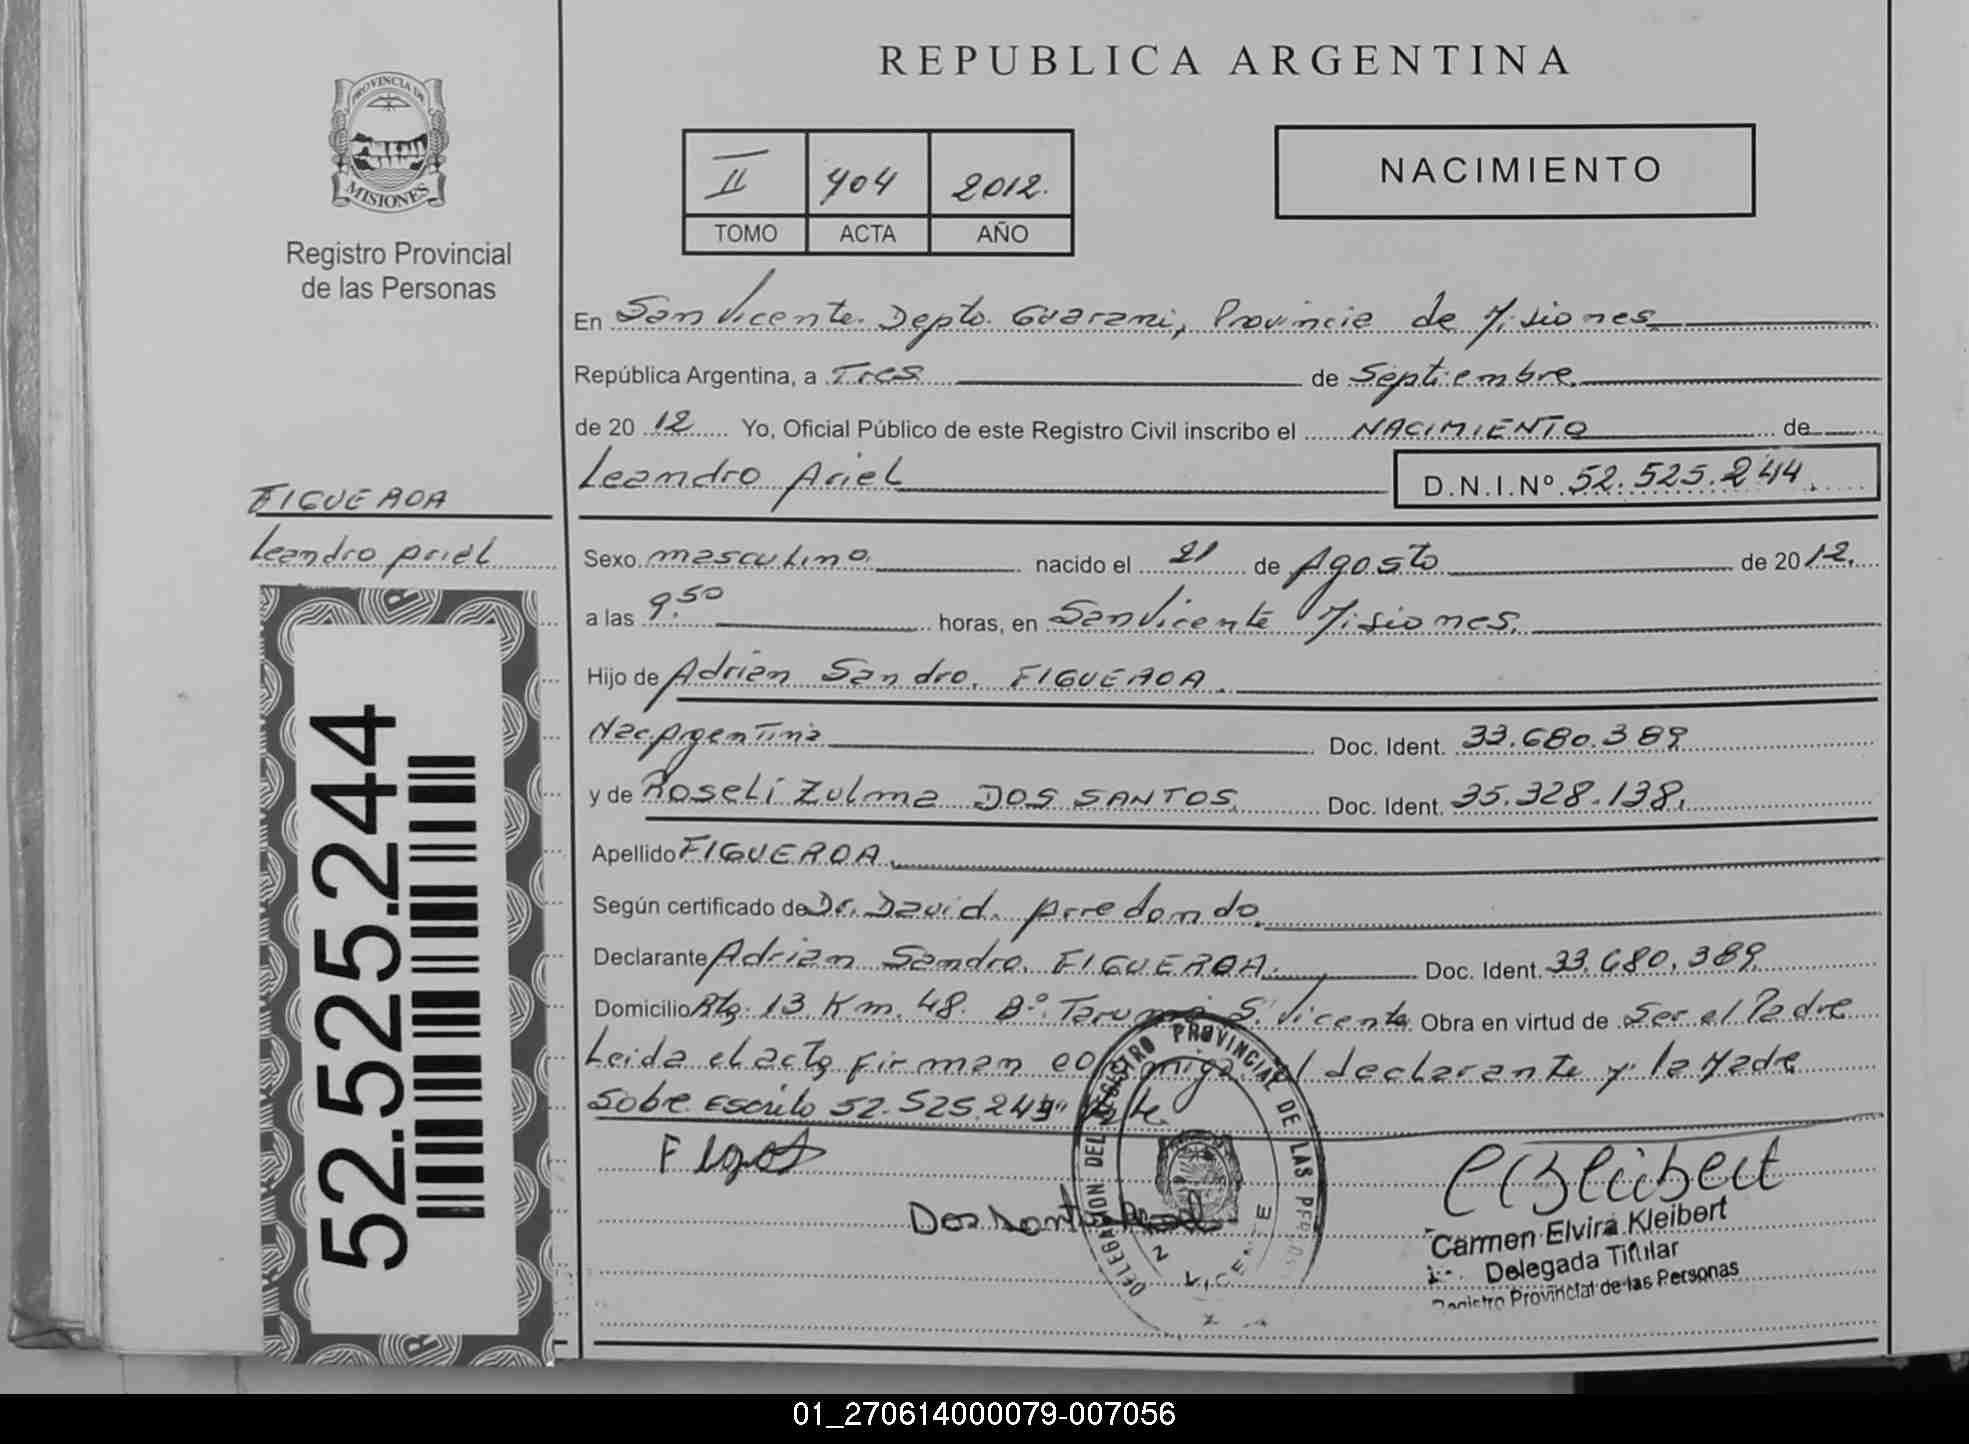 REPUBLICA ARGENTINA
PROVINCIA DE
MISIONES
Registro Provincial
de las Personas
II 404 2012.
TOMO ACTA AÑO
NACIMIENTO
En San Vicente. Depto. Guarani, Provincia de Misiones
República Argentina, a Tres de Septiembre.
de 2012 Yo, Oficial Público de este Registro Civil inscribo el NACIMIENTO de
Leandro Ariel D.N.I.Nº 52.525.244.
FIGUEROA
Leandro Ariel
52.525.244
Sexo masculino. nacido el 21 de Agosto de 2012.
a las 9.50 horas, en San Vicente Misiones.
Hijo de Adrian Sandro. FIGUEROA.
Nac. Argentina Doc. Ident. 33.680.389
y de Roseli Zulma DOS SANTOS. Doc. Ident. 35.328.138.
Apellido FIGUEROA.
Según certificado de Dr. David. Arredondo.
Declarante Adrian Sandro. FIGUEROA. Doc. Ident. 33.680.389
Domicilio Rta. 13 Km. 48. Bº. Taruma S. Vicente Obra en virtud de Ser el Padre
Leida el acta firman conmigo el declarante y la Madre
Sobre Escrito 52.525.244" Vale
Dos Santos
DELEGACION DEL REGISTRO PROVINCIAL DE LAS PERSONAS
VICENTE
Carmen Elvira Kleibert
Delegada Titular
Registro Provincial de las Personas
01_270614000079-007056